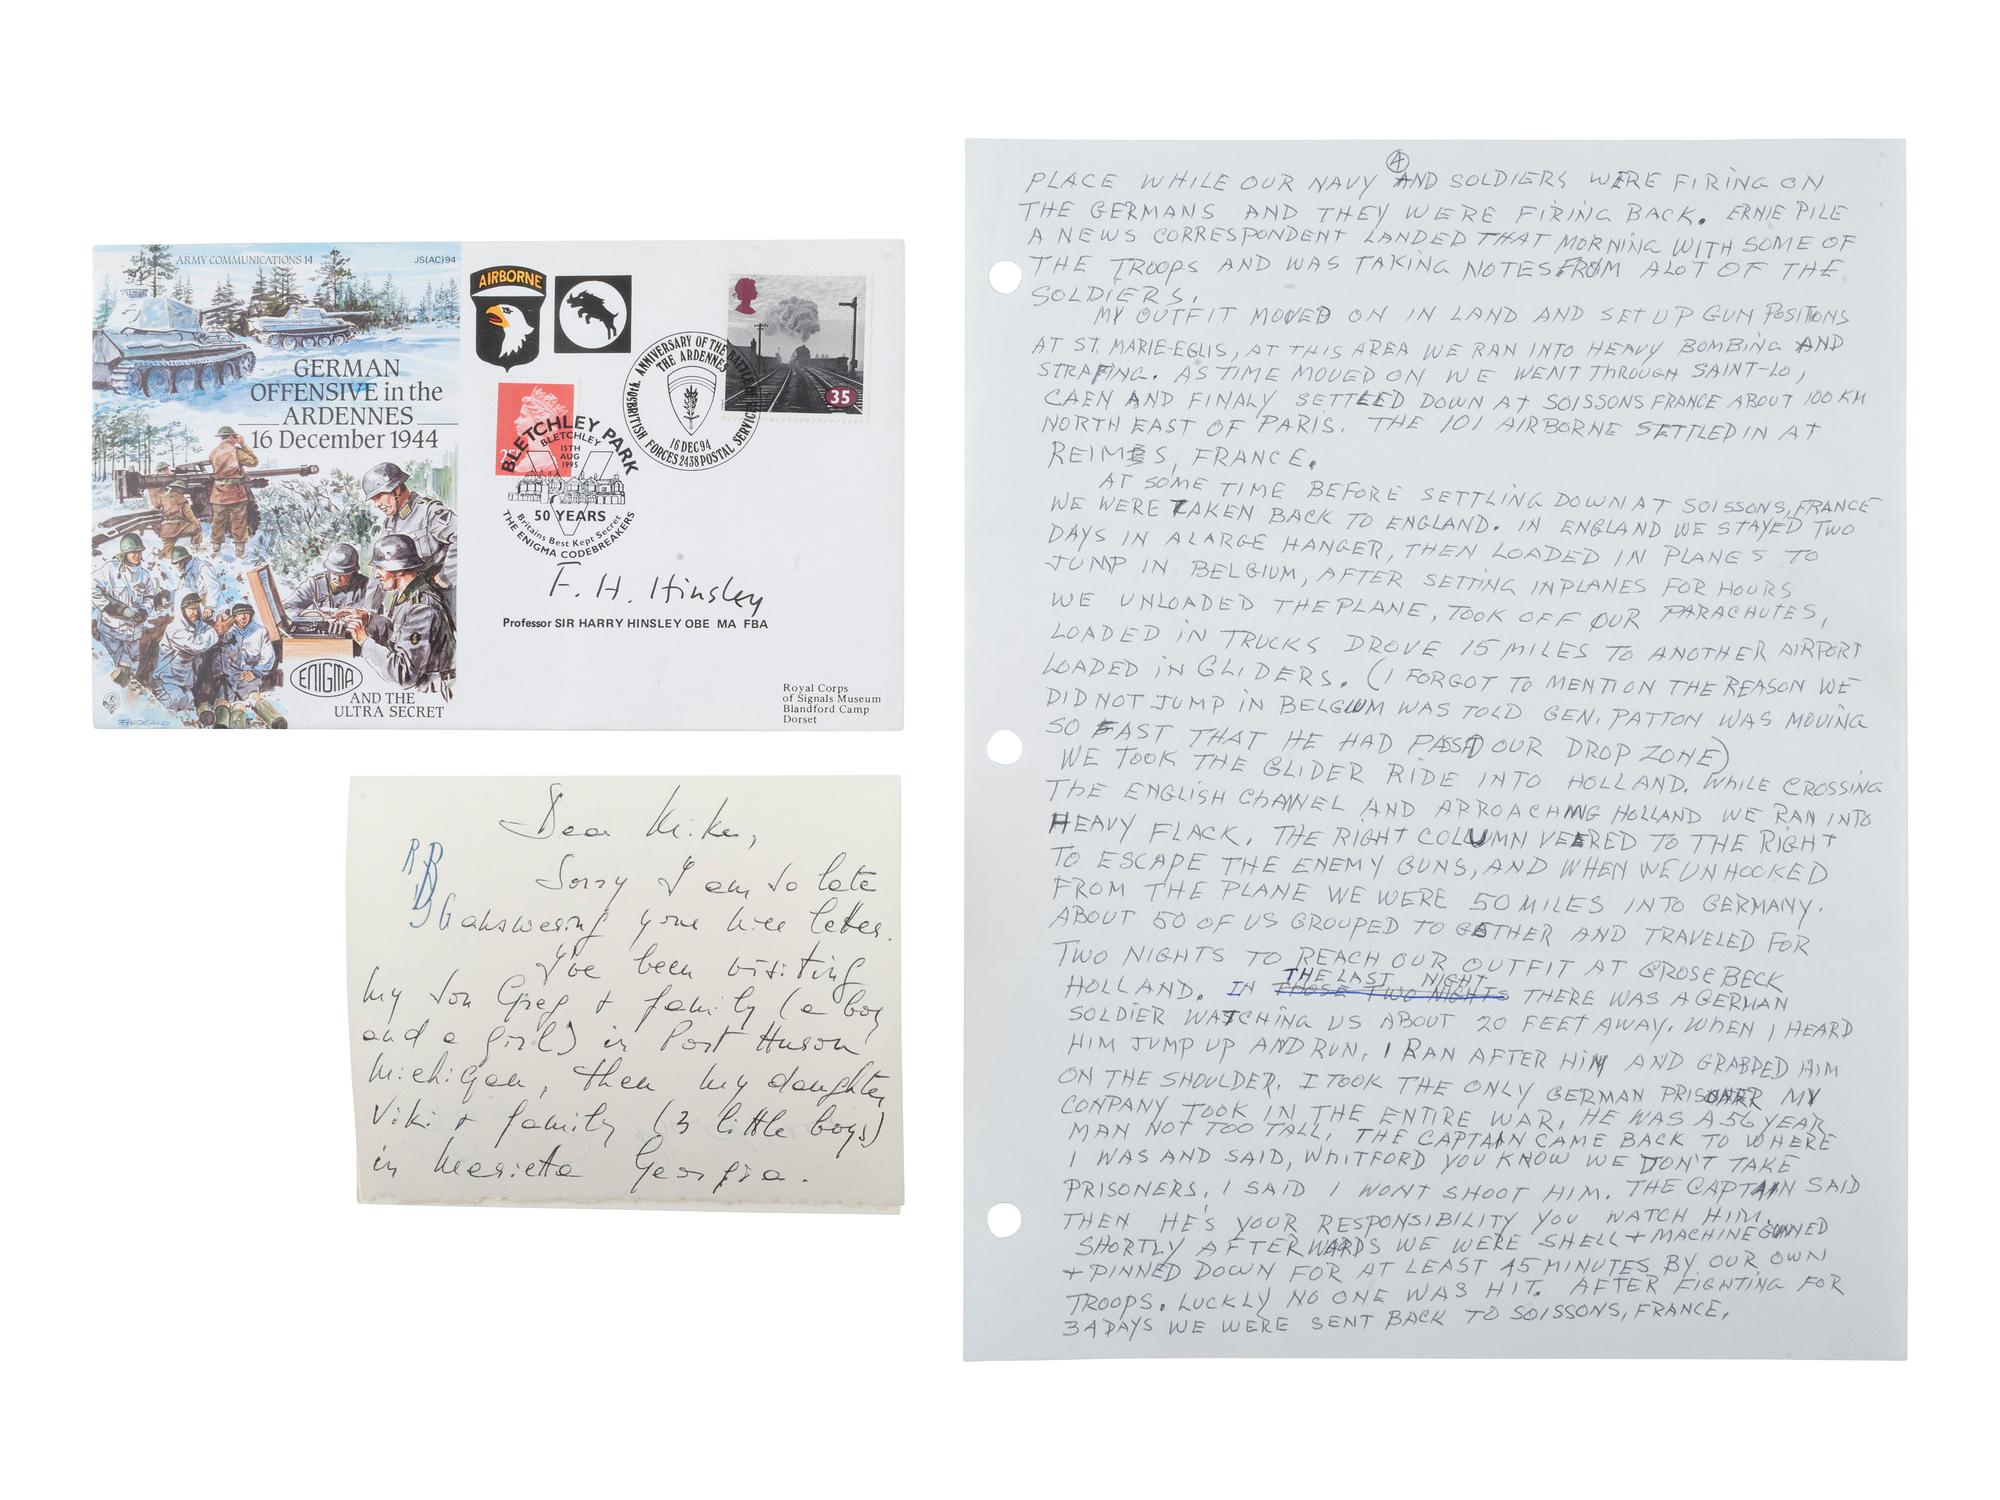 ARMY COMMUNICATIONS 14
JS(AC)94
GERMAN
OFFENSIVE in the
ARDENNES
16 December 1944
ENIGMA
AND THE
ULTRA SECRET
AIRBORNE
35
50th ANNIVERSARY OF THE BATTLE
THE ARDENNES
16 DEC 94
BRITISH FORCES 2438 POSTAL SERVICE
BLETCHLEY PARK
BLETCHLEY
15TH
AUG
1995
50 YEARS
Britains Best Kept Secret
THE ENIGMA CODEBREAKERS
F. H. Hinsley
Professor SIR HARRY HINSLEY OBE MA FBA
Royal Corps
of Signals Museum
Blandford Camp
Dorset
Dear Mike,
Sorry I am so late
answering your nice letter.
I've been visiting
my son Greg + family (a boy
and a girl) in Port Huron
Michigan, then my daughter
Viki + family (3 little boys)
in Marietta Georgia.
4
PLACE WHILE OUR NAVY AND SOLDIERS WERE FIRING ON
THE GERMANS AND THEY WERE FIRING BACK. ERNIE PILE
A NEWS CORRESPONDENT LANDED THAT MORNING WITH SOME OF
THE TROOPS AND WAS TAKING NOTES FROM ALOT OF THE
SOLDIERS.
MY OUTFIT MOVED ON IN LAND AND SET UP GUN POSITIONS
AT ST. MARIE-EGLIS, AT THIS AREA WE RAN INTO HEAVY BOMBING AND
STRAFING. AS TIME MOVED ON WE WENT THROUGH SAINT-LO,
CAEN AND FINALY SETTLED DOWN AT SOISSONS FRANCE ABOUT 100 KM
NORTH EAST OF PARIS. THE 101 AIRBORNE SETTLED IN AT
REIMES, FRANCE.
AT SOME TIME BEFORE SETTLING DOWN AT SOISSONS, FRANCE
WE WERE TAKEN BACK TO ENGLAND. IN ENGLAND WE STAYED TWO
DAYS IN A LARGE HANGER, THEN LOADED IN PLANES TO
JUMP IN BELGIUM, AFTER SETTING IN PLANES FOR HOURS
WE UNLOADED THE PLANE, TOOK OFF OUR PARACHUTES,
LOADED IN TRUCKS DROVE 15 MILES TO ANOTHER AIRPORT
LOADED IN GLIDERS. (I FORGOT TO MENTION THE REASON WE
DID NOT JUMP IN BELGIUM WAS TOLD GEN. PATTON WAS MOVING
SO FAST THAT HE HAD PASSD OUR DROP ZONE)
WE TOOK THE GLIDER RIDE INTO HOLLAND. WHILE CROSSING
THE ENGLISH CHANNEL AND APROACHING HOLLAND WE RAN INTO
HEAVY FLACK. THE RIGHT COLUMN VEERED TO THE RIGHT
TO ESCAPE THE ENEMY GUNS, AND WHEN WE UNHOOKED
FROM THE PLANE WE WERE 50 MILES INTO GERMANY.
ABOUT 50 OF US GROUPED TO GETHER AND TRAVELED FOR
TWO NIGHTS TO REACH OUR OUTFIT AT GROSEBECK
THE LAST NIGHT
HOLLAND. IN THOSE TWO NIGHTS THERE WAS A GERMAN
SOLDIER WATCHING US ABOUT 20 FEET AWAY. WHEN I HEARD
HIM JUMP UP AND RUN, I RAN AFTER HIM AND GRABBED HIM
ON THE SHOULDER. I TOOK THE ONLY GERMAN PRISONER MY
CONPANY TOOK IN THE ENTIRE WAR, HE WAS A 56 YEAR
MAN NOT TOO TALL, THE CAPTAIN CAME BACK TO WHERE
I WAS AND SAID, WHITFORD YOU KNOW WE DON'T TAKE
PRISONERS, I SAID I WONT SHOOT HIM. THE CAPTAIN SAID
THEN HE'S YOUR RESPONSIBILITY YOU WATCH HIM.
SHORTLY AFTERWARDS WE WERE SHELL + MACHINE GUNNED
+ PINNED DOWN FOR AT LEAST 45 MINUTES BY OUR OWN
TROOPS. LUCKLY NO ONE WAS HIT. AFTER FIGHTING FOR
34 DAYS WE WERE SENT BACK TO SOISSONS, FRANCE.